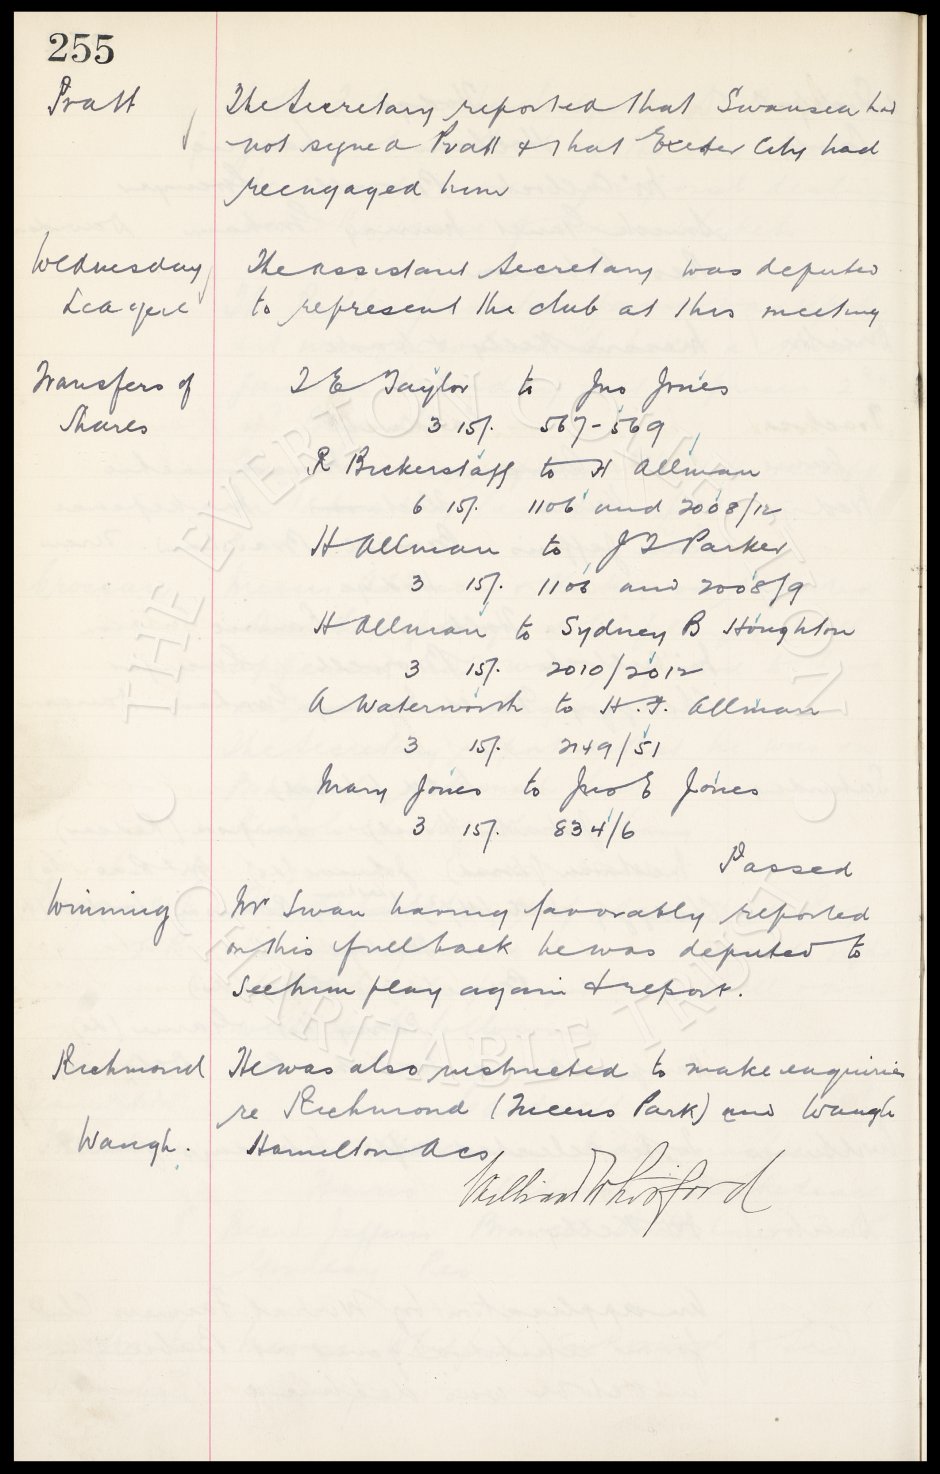 255
Pratt The Secretary reported that Swansea had
not signed Pratt & that Exeter City had
reengaged him
Wednesday The assistant Secretary was deputed
League to represent the club at this meeting
Transfers of T E Taylor to Jno Jones
Shares 3 15/. 567-569
R Bickerstaff to H Allman
6 15/. 1106 and 2008/12
H Allman to J T Parker
3 15/. 1106 and 2008/9
H Allman to Sydney B Houghton
3 15/. 2010/2012
A Waterworth to H. T. Allman
3 15/. 2149/51
Mary Jones to Jno E Jones
3 15/. 834/6
Passed
Winning Mr Swan having favorably reported
on this full back he was deputed to
see him play again & report.
Richmond He was also instructed to make enquiries
re Richmond (Queens Park) and Waugh
Waugh. Hamilton Acs
William Whitford
THE EVERTON COLLECTION
CHARITABLE TRUST